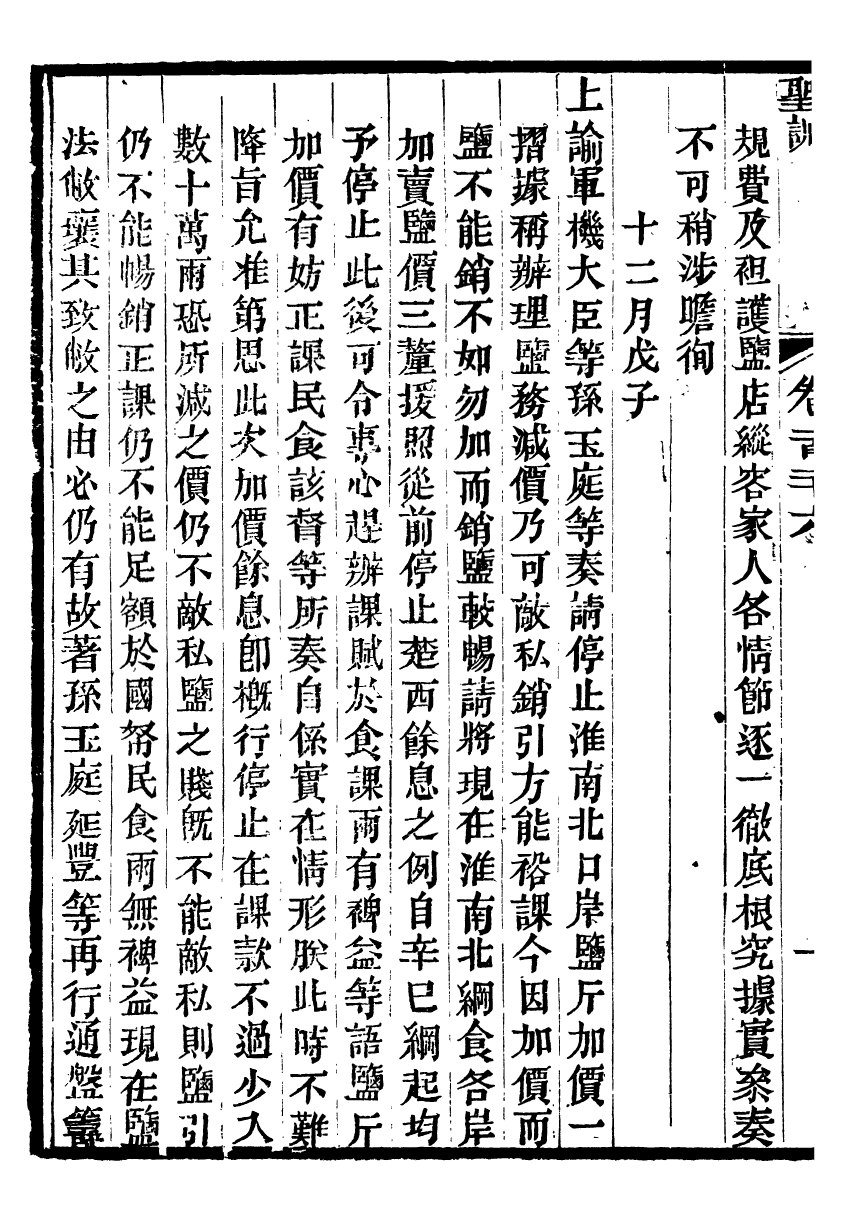 聖訓
卷一百二十六
一
規費及袒護鹽店縱容家人各情節逐一徹底根究據實叅奏
不可稍涉瞻徇
十二月戊子
上諭軍機大臣等孫玉庭等奏請停止淮南北口岸鹽斤加價一
摺據稱辦理鹽務減價乃可敵私銷引方能裕課今因加價而
鹽不能銷不如勿加而銷鹽較暢請將現在淮南北綱食各岸
加賣鹽價三釐援照從前停止楚西餘息之例自辛巳綱起均
予停止此後可令專心趕辦課賦於食課兩有裨益等語鹽斤
加價有妨正課民食該督等所奏自係實在情形朕此時不難
降旨允准第思此次加價餘息卽槪行停止在課款不過少入
數十萬兩恐所減之價仍不敵私鹽之賤旣不能敵私則鹽引
仍不能暢銷正課仍不能足額於國帑民食兩無裨益現在鹽
法敝壞其致敝之由必仍有故著孫玉庭延豐等再行通盤籌